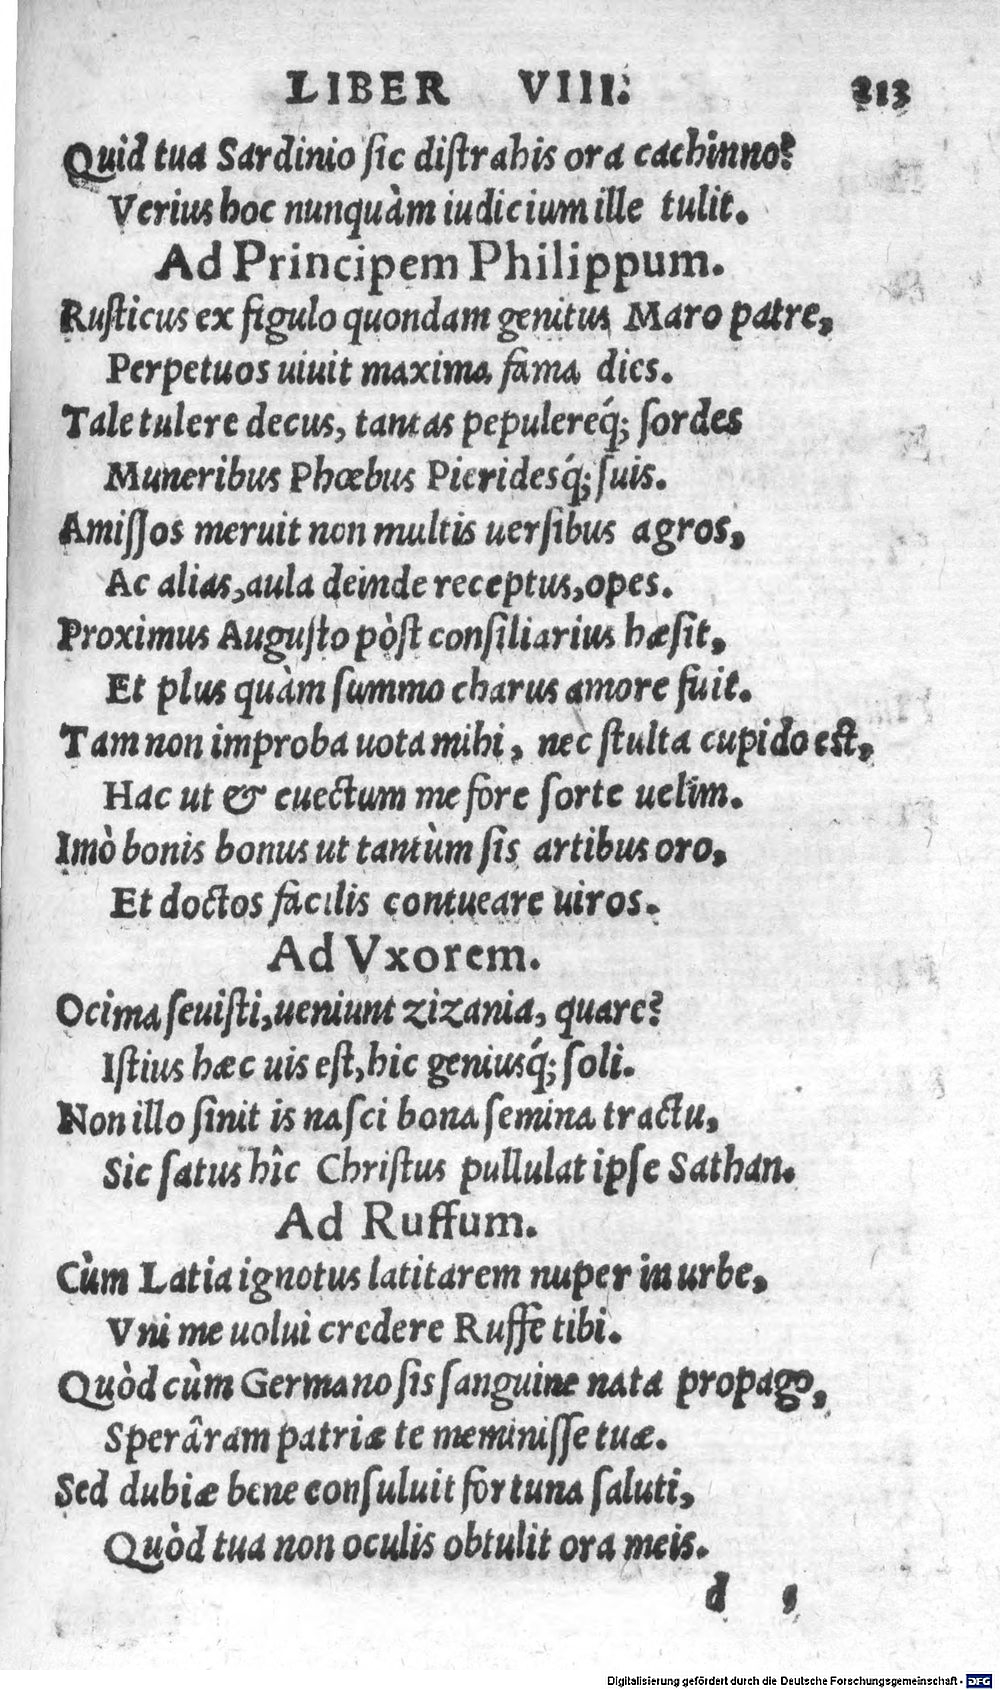 LIBER VIII. 213
Quid tua Sardinio ſic diſtrahis ora cachinno?
Verius hoc nunquàm iudicium ille tulit.
Ad Principem Philippum.
Ruſticus ex figulo quondam genitus Maro patre,
Perpetuos uiuit maxima fama dies.
Tale tulere decus, tantas pepulereq́; ſordes
Muneribus Phœbus Pieridesq́; ſuis.
Amiſſos meruit non multis uerſibus agros,
Ac alias, aula deinde receptus, opes.
Proximus Auguſto pòſt conſiliarius hæſit,
Et plus quàm ſummo charus amore fuit.
Tam non improba uota mihi, nec ſtulta cupido eſt,
Hac ut & euectum me fore ſorte uelim.
Imò bonis bonus ut tantùm ſis artibus oro,
Et doctos facilis contueare uiros.
Ad Vxorem.
Ocima ſeuiſti, ueniunt zizania, quare?
Iſtius hæc uis eſt, hic geniusq́; ſoli.
Non illo ſinit is naſci bona ſemina tractu,
Sic ſatus hîc Chriſtus pullulat ipſe Sathan.
Ad Ruffum.
Cùm Latia ignotus latitarem nuper in urbe,
Vni me uolui credere Ruffe tibi.
Quòd cùm Germano ſis ſanguine nata propago,
Sperâram patriæ te meminiſſe tuæ.
Sed dubiæ bene conſuluit fortuna ſaluti,
Quòd tua non oculis obtulit ora meis.
d
Digitalisierung gefördert durch die Deutsche Forschungsgemeinschaft - DFG